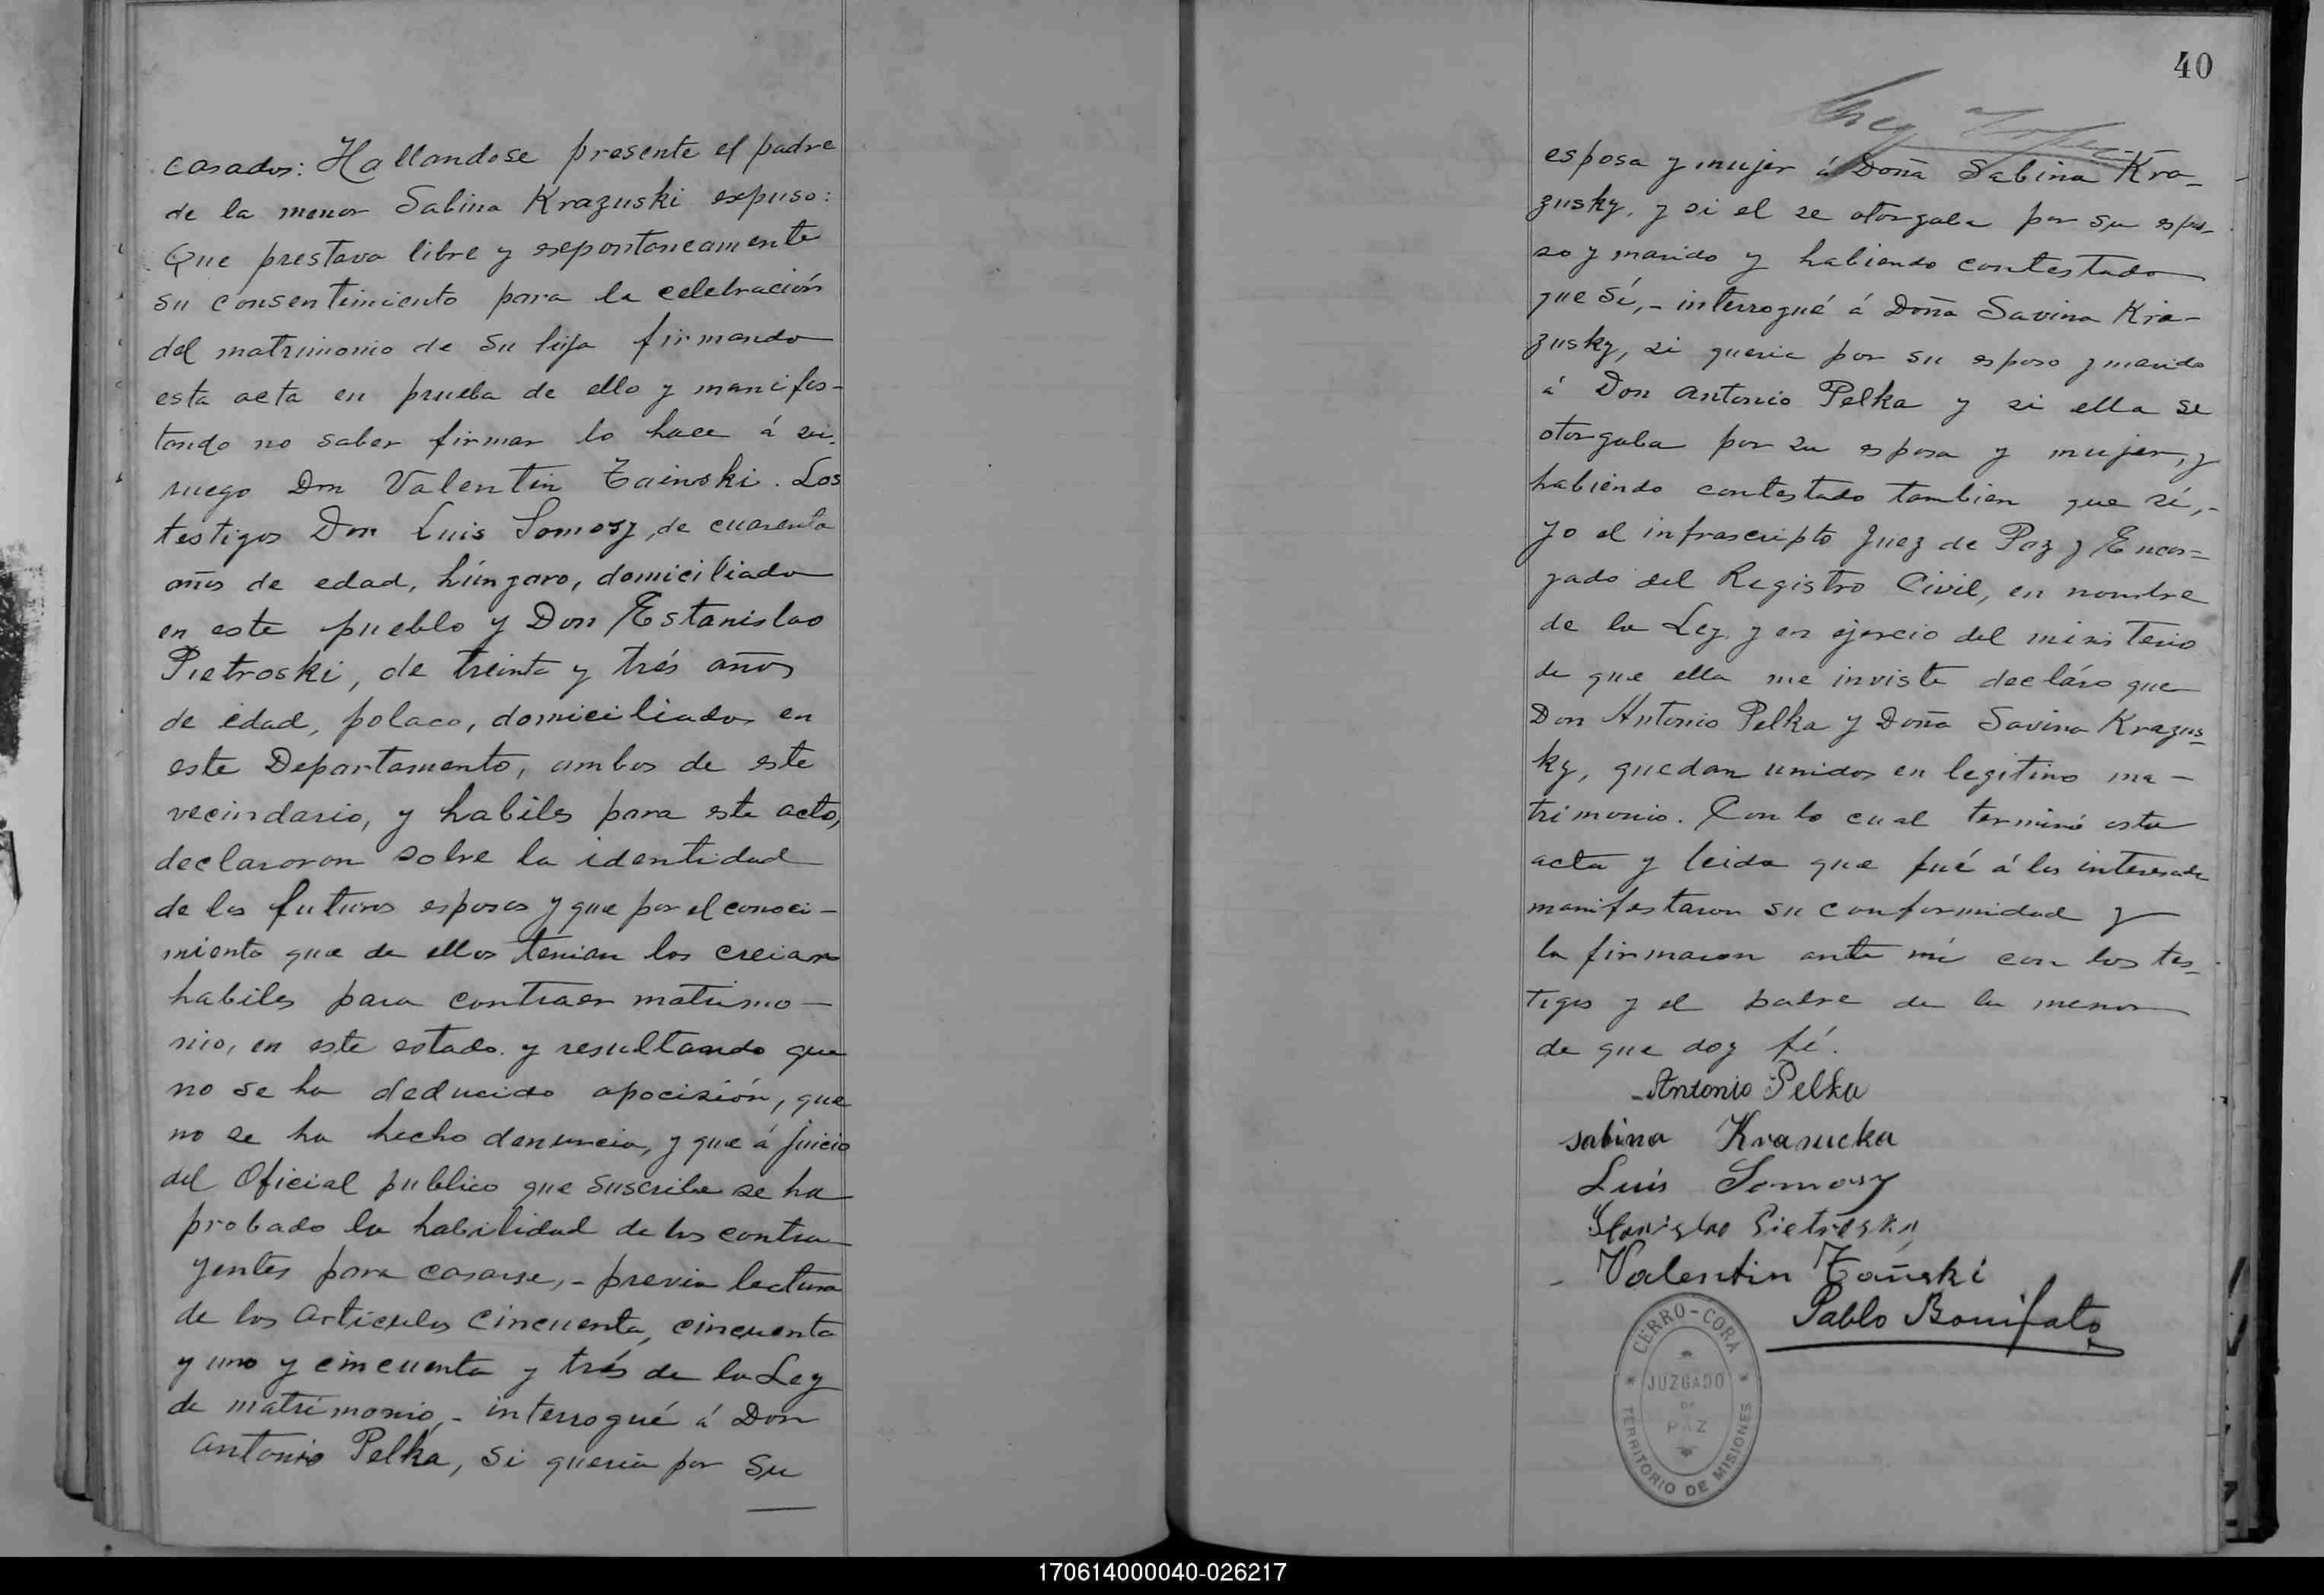 casados: Hallandose presente el padre
de la menor Sabina Krazuski expuso:
Que prestava libre y espontaneamente
su consentimiento para la celebración
del matrimonio de su hija firmando
esta acta en prueba de ello y manifes-
tando no saber firmar lo hace á su
ruego Don Valentin Tainski. Los
testigos Don Luis Somosy, de cuarenta
años de edad, húngaro, domiciliado
en este pueblo y Don Estanislao
Pietroski, de treinta y trés años
de edad, polaco, domiciliados en
este Departamento, ambos de este
vecindario, y habiles para este acto,
declararon sobre la identidad
de los futuros esposos y que por el conoci-
miento que de ellos tenian los creian
habiles para contraer matrimo-
nio, en este estado y resultando que
no se ha deducido opocisión, que
no se ha hecho denuncia, y que á juicio
del Oficial publico que suscribe se ha
probado la habilidad de los contra-
yentes para casarse,- previa lectura
de los articulos cincuenta, cincuenta
y uno y cincuenta y trés de la Ley
de matrimonio,- interrogué á Don
Antonio Pelka, si queria por su
40
esposa y mujer á Doña Sabina Kra-
zusky, y si el se otorgaba por su espo-
so y marido y habiendo contestado
que sí,- interrogué á Doña Savina Kra-
zusky, si queria por su esposo y marido
á Don Antonio Pelka y si ella se
otorgaba por su esposa y mujer, y
habiendo contestado tambien que sí,-
yo el infrascripto Juez de Paz y Encar-
gado del Registro Civil, en nombre
de la Ley y en ejercio del ministerio
de que ella me inviste decláro que
Don Antonio Pelka y Doña Savina Krazus-
ky, quedan unidos en legitimo ma-
trimonio. Con lo cual terminó esta
acta y leida que fué á los interesados
manifestaron su conformidad y
la firmaron ante mi con los tes-
tigos y el padre de la menor
de que doy fé.
Antonio Pelka
Sabina Krasucka
Luis Somosy
Valentin Tański
Pablo Bonifato
CERRO-CORÁ
JUZGADO
DE
PAZ
TERRITORIO DE MISIONES
170614000040-026217